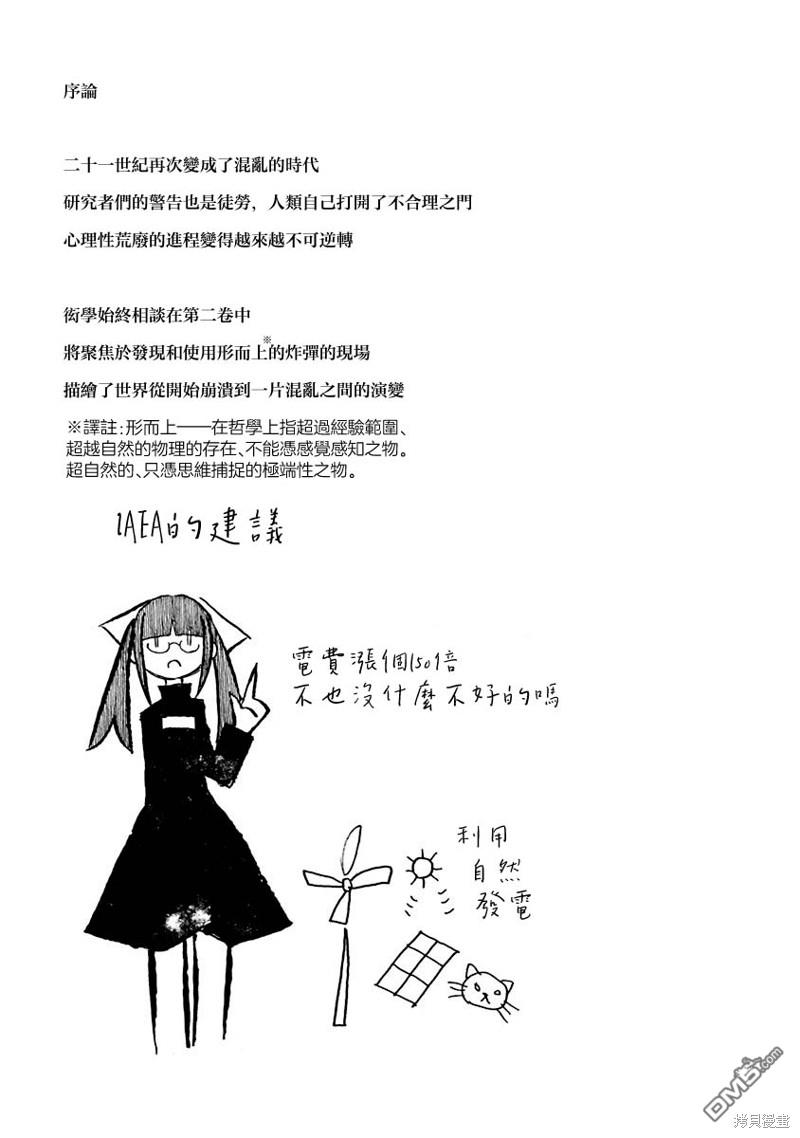 序論
二十一世紀再次變成了混亂的時代
研究者們的警告也是徒勞，人類自己打開了不合理之門
心理性荒廢的進程變得越來越不可逆轉
衒學始終相談在第二卷中
將聚焦於發現和使用形而上※的炸彈的現場
描繪了世界從開始崩潰到一片混亂之間的演變
※譯註:形而上——在哲學上指超過經驗範圍、
超越自然的物理的存在、不能憑感覺感知之物。
超自然的、只憑思維捕捉的極端性之物。
IAEA的建議
電費漲個150倍
不也沒什麼不好的嗎
利用
自然
發電
DM5.com
拷貝漫畫